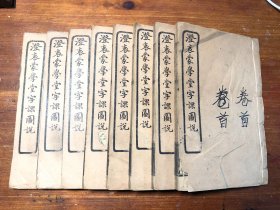 澄衷蒙學堂字課圖說
澄衷蒙學堂字課圖說
澄衷蒙學堂字課圖說
澄衷蒙學堂字課圖說
澄衷蒙學堂字課圖說
澄衷蒙學堂字課圖說
澄衷蒙學堂字課圖說
澄衷蒙學堂字課圖說
卷首
卷首